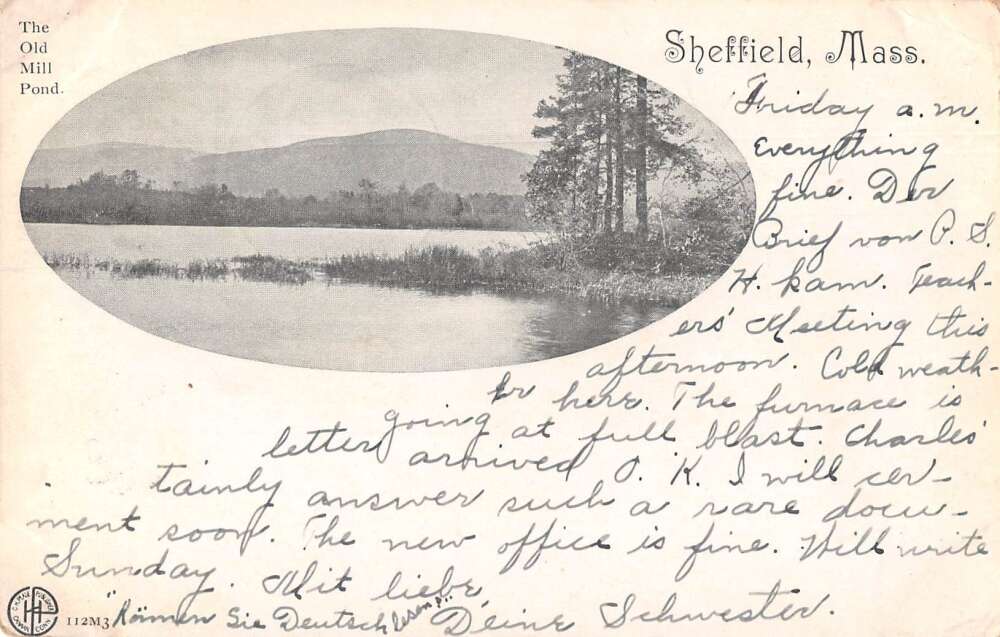 The
Old
Mill
Pond.
Sheffield, Mass.
Friday a.m.
Everything
fine. Der
Brief von P. S.
H. kam. Teach-
ers' Meeting this
afternoon. Cold weath-
er here. The furnace is
going at full blast. Charles'
letter arrived O. K. I will cer-
tainly answer such a rare docu-
ment soon. The new office is fine. Will write
Sunday. Mit liebe,
Deine Schwester.
"Können Sie Deutsch lesen?"
112M3